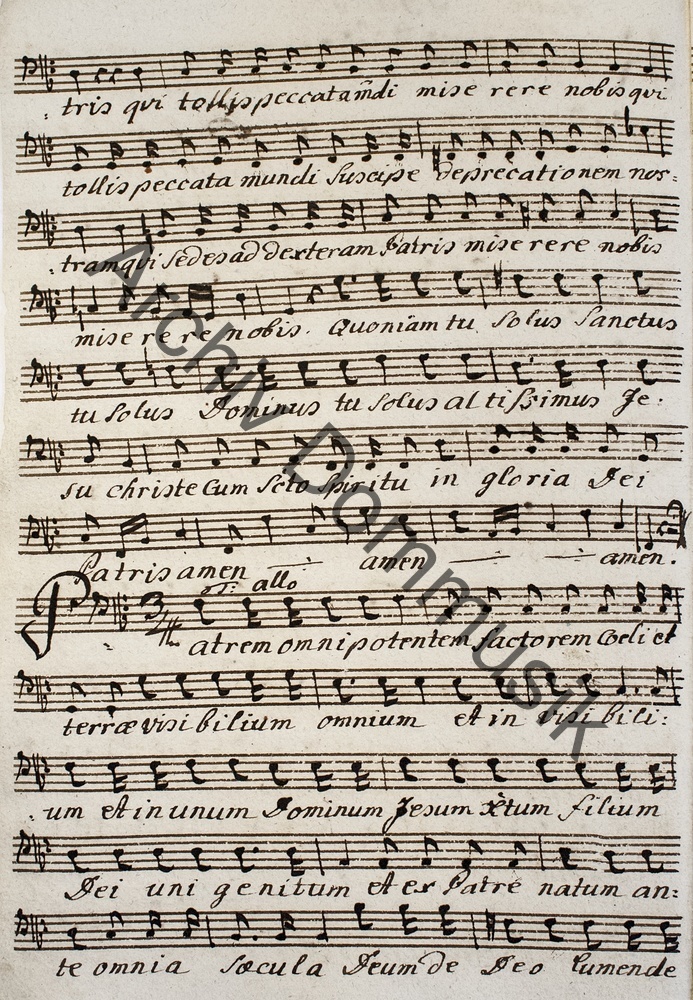 : tris qui tollis peccata mdi mise rere nobis qui
tollis peccata mundi Suscipe deprecationem nos:
: tram qui Sedes ad dexteram Patris mise rere nobis
mise re re nobis. Quoniam tu Solus Sanctus
tu Solus Dominus tu Solus al tissimus Je:
su christe Cum Scto Spiritu in gloria Dei
Patris amen — amen — — amen.
allo
Patrem omnipotentem factorem Coeli et
terræ visi bilium omnium et in visi bili:
. um et in unum Dominum Jesum Xtum filium
Dei uni genitum et ex Patre natum an:
te omnia sæcula Deum de Deo lumen de
Archiv Dommusik